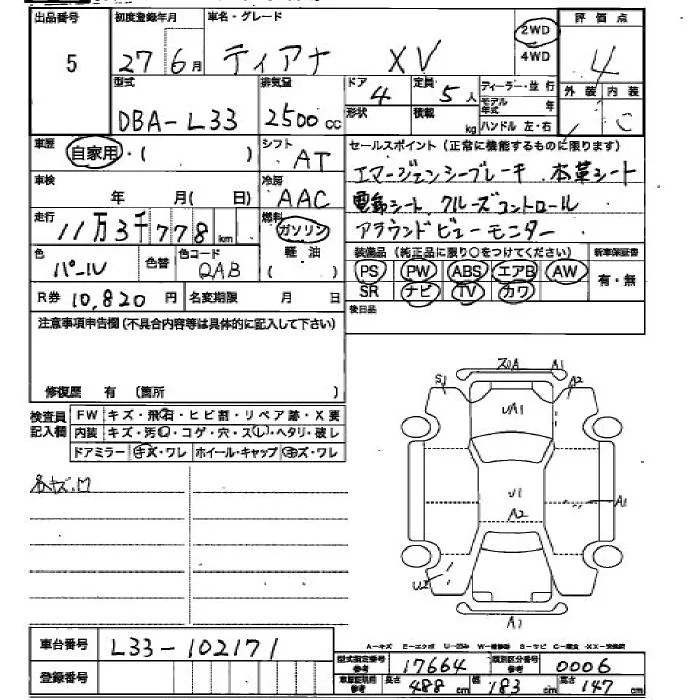 出品番号 初度登録年月 車名・グレード 2WD 評価点
5 27 6月 ティアナ XV 4WD 4
型式 排気量 ドア 定員 ディーラー・並行 外装 内装
DBA-L33 2500cc 4 5人 モデル年式 年 C
形状 積載 kg ハンドル 左・右
車歴 自家用・( ) シフト AT セールスポイント(正常に機能するものに限ります)
車検 年 月( 日) 冷房 AAC エマージェンシーブレーキ 本革シート
電動シート クルーズコントロール
走行 11万3千778km 燃料 ガソリン アラウンドビューモニター
軽油
( )
色 パール 色替 色コード QAB 装備品(純正品に限り○をつけてください) 新車保証書
PS PW ABS エアB AW 有・無
R券 10,820円 名変期限 月 日 SR ナビ TV カワ
注意事項申告欄(不具合内容等は具体的に記入して下さい) 後日品
修復歴 有 (箇所 )
検査員記入欄 FW キズ・飛石・ヒビ割・リペア跡・X要
内装 キズ・汚れ・コゲ・穴・スレ・ヘタリ・破レ
ドアミラー キズ・ワレ ホイール・キャップ キズ・ワレ
各キズ.M
A1
S1 A2
UA1
U1
A2 A1
U2
A1
車台番号 L33-102171
登録番号
型式指定番号 参考 17664 類別区分番号 参考 0006
車庫証明用 参考 長さ 488cm 幅 183cm 高さ 147cm